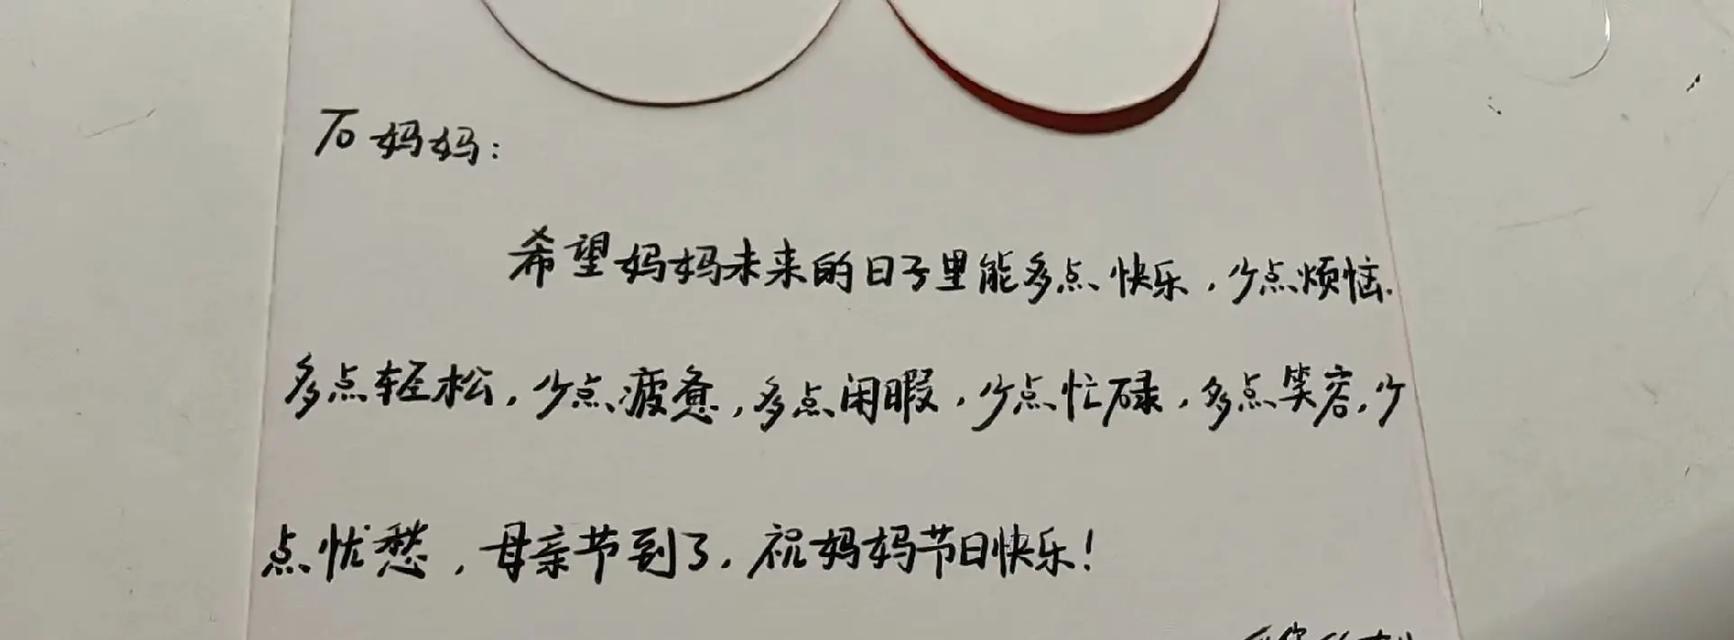 To 妈妈:
希望妈妈未来的日子里能多点快乐,少点烦恼.
多点轻松,少点疲惫,多点闲暇,少点忙碌,多点笑容,少
点忧愁,母亲节到了,祝妈妈节日快乐!